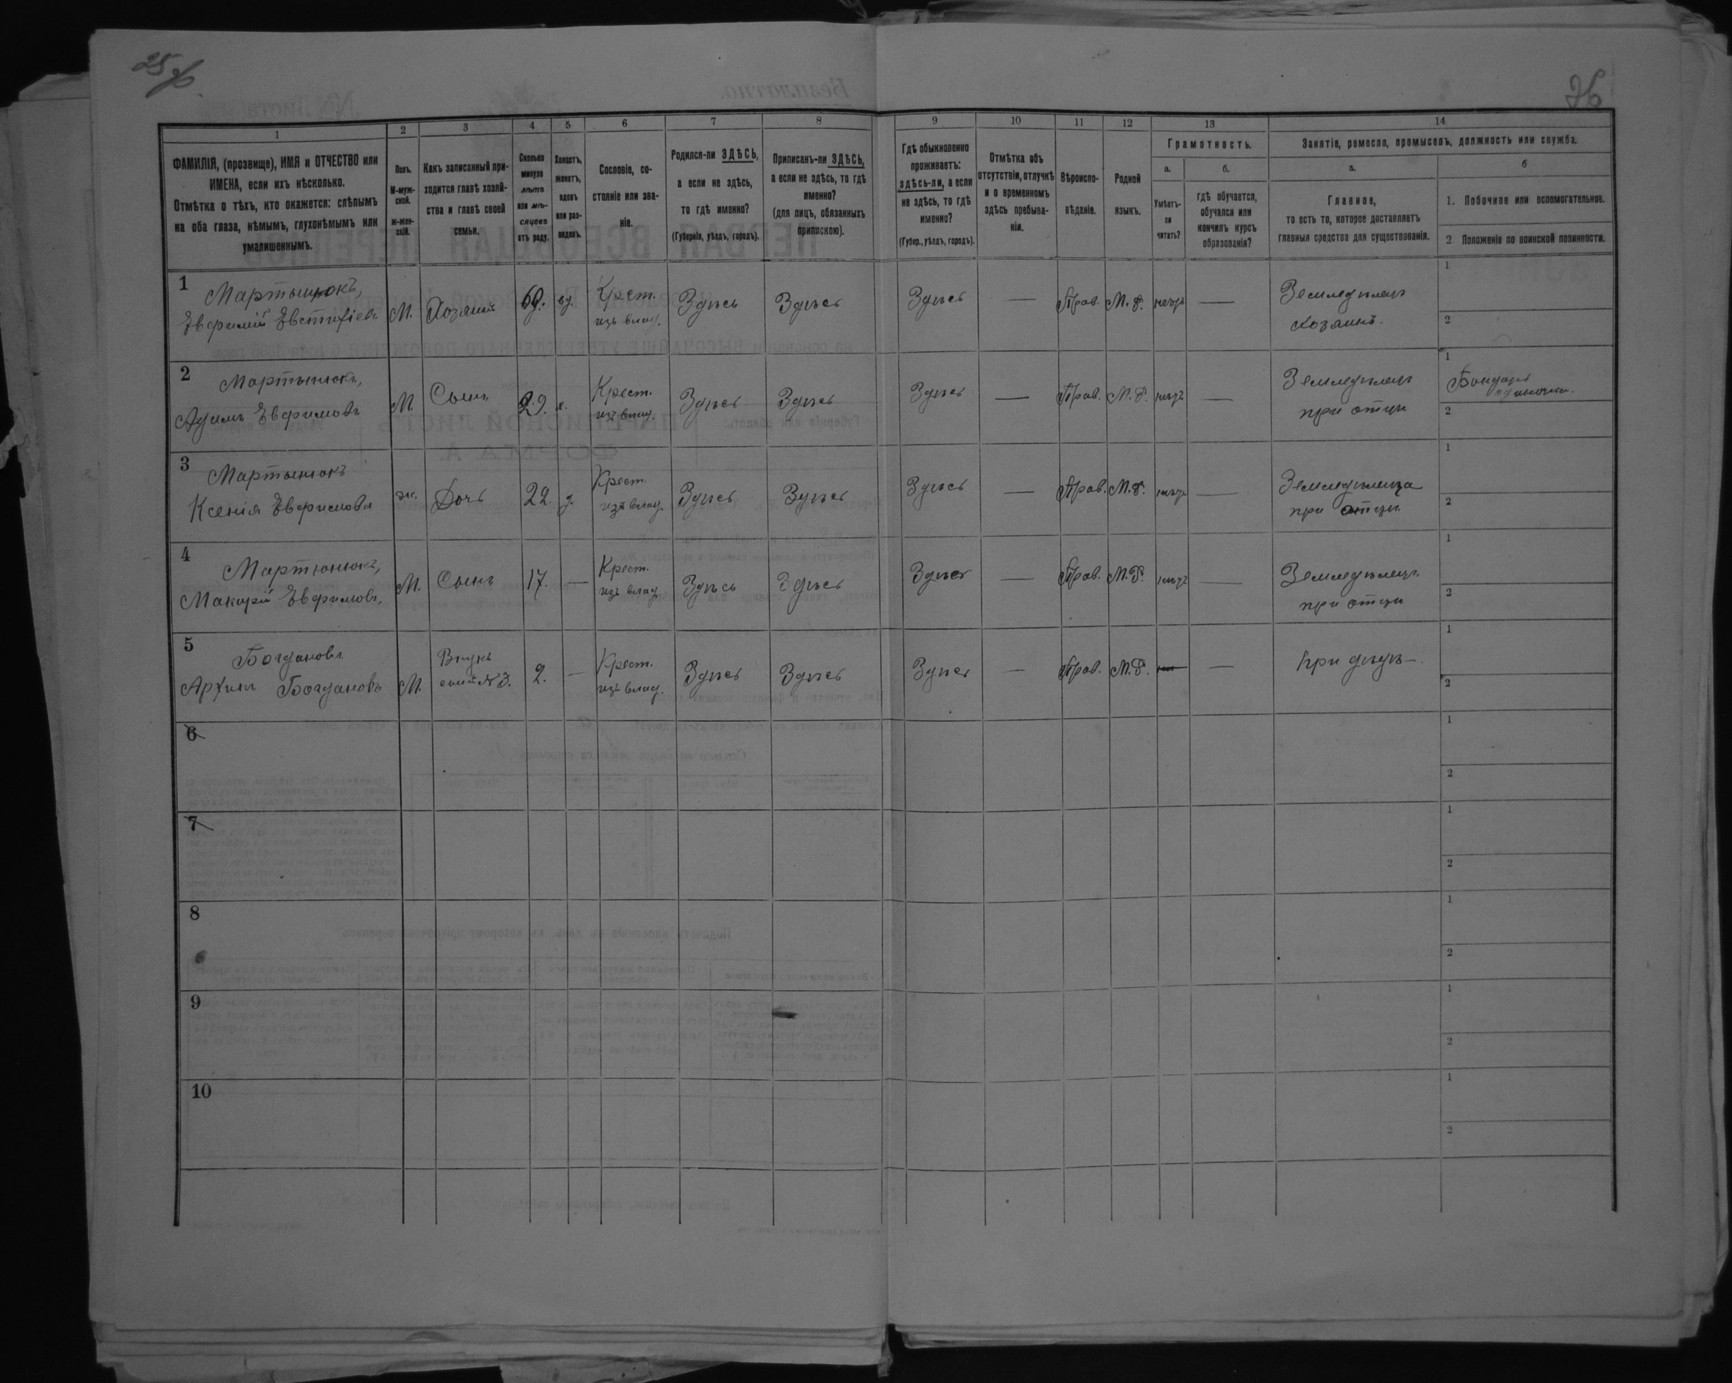 25 об
26
1
2
3
4
5
6
7
8
9
10
11
12
13
14
ФАМИЛІЯ, (прозвище), ИМЯ и ОТЧЕСТВО или
ИМЕНА, если ихъ нѣсколько.
Отмѣтка о тѣхъ, кто окажется: слѣпымъ
на оба глаза, нѣмымъ, глухонѣмымъ или
умалишеннымъ.
Полъ.
М-муж-
ской.
ж-жен-
скій.
Какъ записанный при-
ходится главѣ хозяй-
ства и главѣ своей
семьи.
Сколько
минуло
лѣтъ
или мѣ-
сяцевъ
отъ роду.
Холостъ,
женатъ,
вдовъ
или раз-
веденъ.
Сословіе, со-
стояніе или зва-
ніе.
Родился-ли ЗДѢСЬ,
а если не здѣсь,
то гдѣ именно?
(Губернія, уѣздъ, городъ).
Приписанъ-ли ЗДѢСЬ,
а если не здѣсь, то гдѣ
именно?
(для лицъ, обязанныхъ
припискою).
Гдѣ обыкновенно
проживаетъ:
здѣсь-ли, а если
не здѣсь, то гдѣ
именно?
(Губер., уѣздъ, городъ).
Отмѣтка объ
отсутствіи, отлучкѣ
и о временномъ
здѣсь пребыва-
ніи.
Вѣроиспо-
вѣданіе.
Родной
языкъ.
Грамотность.
а.
Умѣетъ-
ли
читать?
б.
гдѣ обучается,
обучался или
кончилъ курсъ
образованія?
Занятіе, ремесло, промыселъ, должность или служба.
а.
Главное,
то есть то, которое доставляетъ
главныя средства для существованія.
б
1. Побочное или вспомогательное.
2. Положеніе по воинской повинности.
1
Мартынюкъ,
Евфимій Евстафіевъ
М.
Хозяинъ
69.
вд.
Крест.
изъ влад.
Здѣсь
Здѣсь
Здѣсь
—
Прав.
М. Р.
нѣтъ
—
Земледѣлецъ
хозяинъ.
1
2
2
Мартынюкъ,
Адамъ Евфимовъ
М.
Сынъ
29.
х.
Крест.
изъ влад.
Здѣсь
Здѣсь
Здѣсь
—
Прав.
М. Р.
нѣтъ
—
Земледѣлецъ
при отцѣ
1
Бондарь
одиночка.
2
3
Мартынюкъ
Ксенія Евфимова
ж.
Дочь
22.
д.
Крест.
изъ влад.
Здѣсь
Здѣсь
Здѣсь
—
Прав.
М. Р.
нѣтъ
—
Земледѣлица
при отцѣ
1
2
4
Мартынюкъ,
Макарій Евфимовъ,
М.
Сынъ
17.
—
Крест.
изъ влад.
Здѣсь
Здѣсь
Здѣсь
—
Прав.
М. Р.
нѣтъ
—
Земледѣлецъ
при отцѣ
1
2
5
Богдановъ
Архипъ Богдановъ
М.
Внукъ
сынъ № 3.
2.
—
Крест.
изъ влад.
Здѣсь
Здѣсь
Здѣсь
—
Прав.
М. Р.
—
При дѣдѣ —
1
2
6
1
2
7
1
2
8
1
2
9
1
2
10
1
2